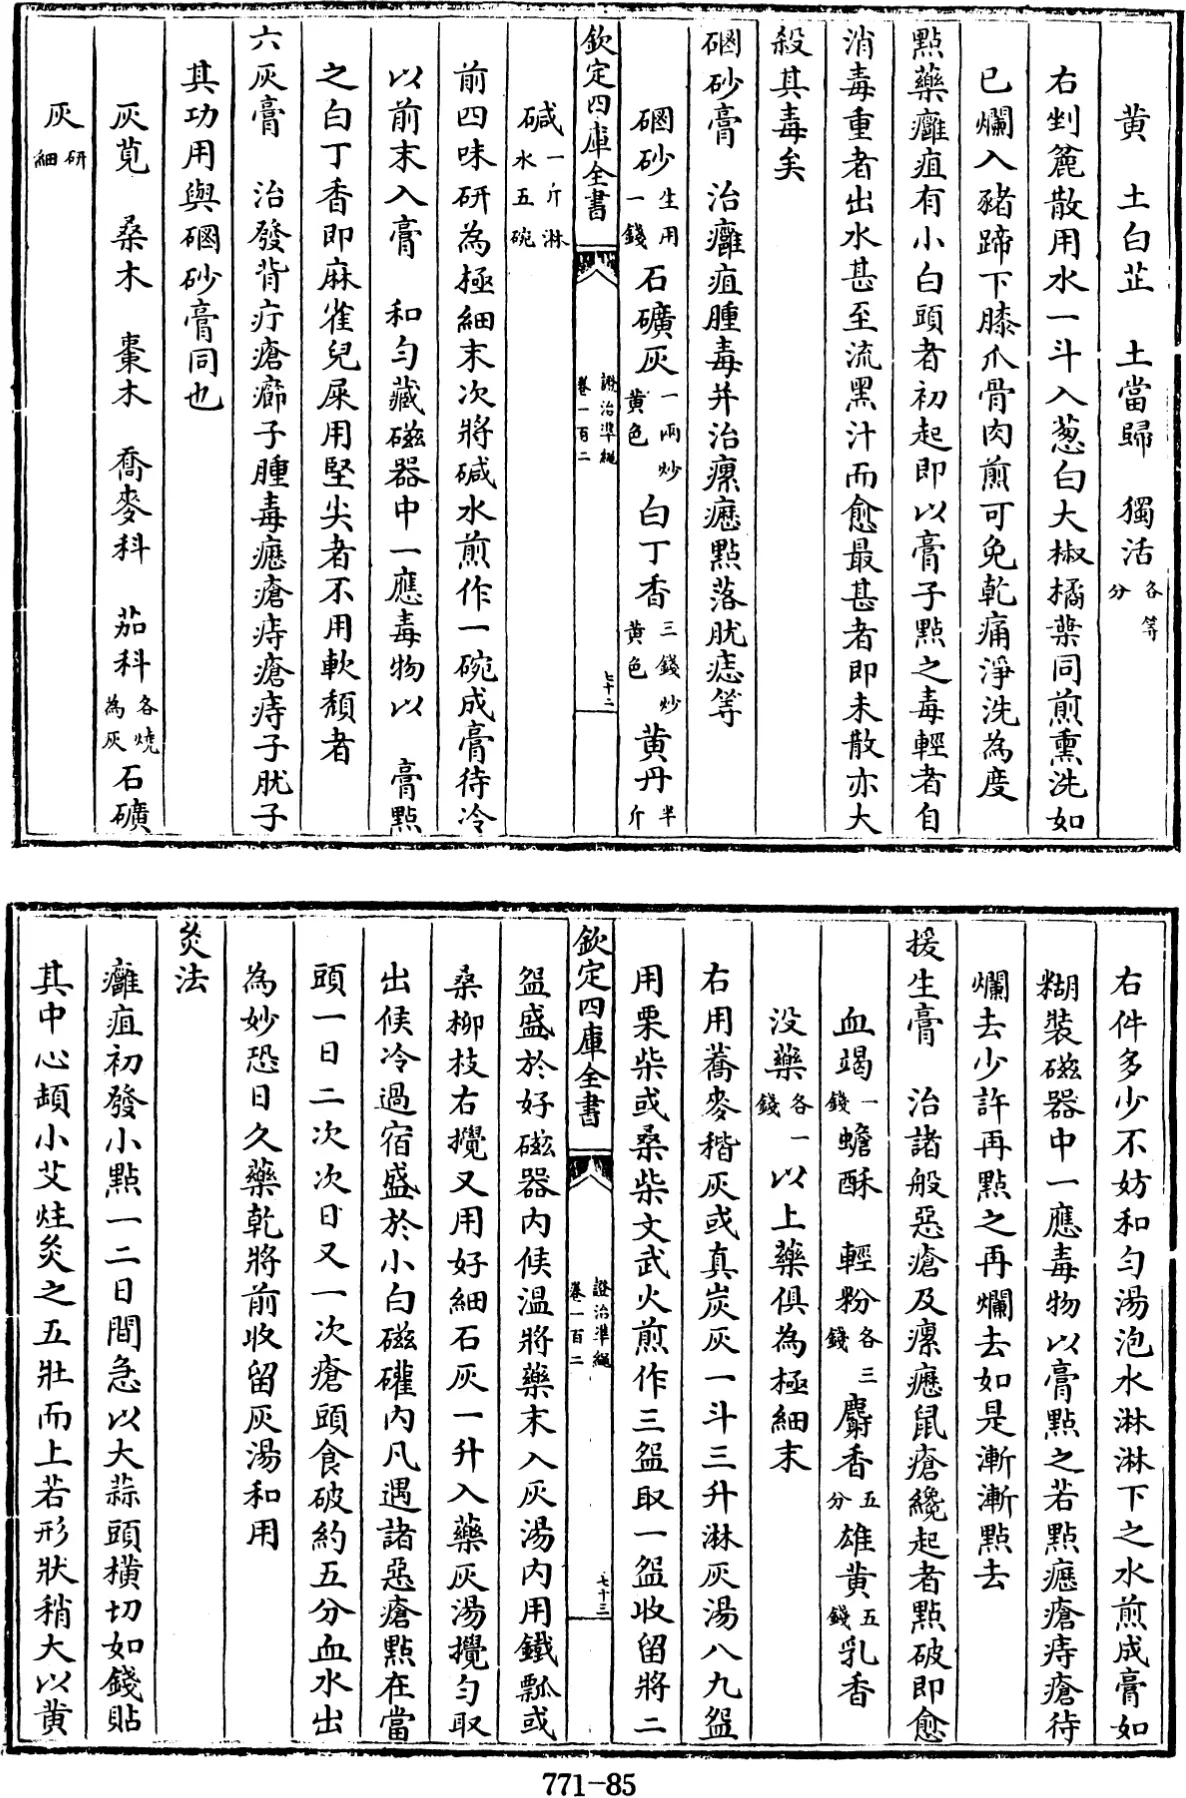 黄　土白芷　土當歸　獨活各等分
右剉麄散用水一斗入葱白大椒橘葉同煎熏洗如
已爛入豬蹄下膝爪骨肉煎可免乾痛淨洗為度
點藥癰疽有小白頭者初起即以膏子點之毒輕者自
消毒重者出水甚至流黑汁而愈最甚者即未散亦大
殺其毒矣
硇砂膏　治癰疽腫毒并治瘰癧點落肬痣等
硇砂生用一錢石礦灰一兩炒黄色白丁香三錢炒黄色黄丹半斤
欽定四庫全書　證治準繩卷一百二　七十二
碱一斤淋水五碗
前四味研為極細末次將碱水煎作一碗成膏待冷
以前末入膏　和匀藏磁器中一應毒物以　膏點
之白丁香即麻雀兒屎用堅尖者不用軟頽者
六灰膏　治發背疔瘡癤子腫毒癧瘡痔瘡痔子肬子
其功用與硇砂膏同也
灰莧　桑木　棗木　喬麥科　茄科各燒為灰石礦
灰研細
右件多少不妨和匀湯泡水淋淋下之水煎成膏如
糊裝磁器中一應毒物以膏點之若點癧瘡痔瘡待
爛去少許再點之再爛去如是漸漸點去
援生膏　治諸般惡瘡及瘰癧鼠瘡纔起者點破即愈
血竭一錢蟾酥　輕粉各三錢麝香五分雄黄五錢乳香
没藥各一錢以上藥俱為極細末
右用蕎麥稭灰或真炭灰一斗三升淋灰湯八九盌
用栗柴或桑柴文武火煎作三盌取一盌收留將二
欽定四庫全書　證治準繩卷一百二　七十三
盌盛於好磁器内候溫將藥末入灰湯内用鐵瓢或
桑柳枝右攪又用好細石灰一升入藥灰湯攪匀取
出候冷過宿盛於小白磁礶内凡遇諸惡瘡點在當
頭一日二次次日又一次瘡頭食破約五分血水出
為妙恐日久藥乾將前收留灰湯和用
灸法
癰疽初發小點一二日間急以大蒜頭橫切如錢貼
其中心頓小艾炷灸之五壯而上若形狀稍大以黄
771-85